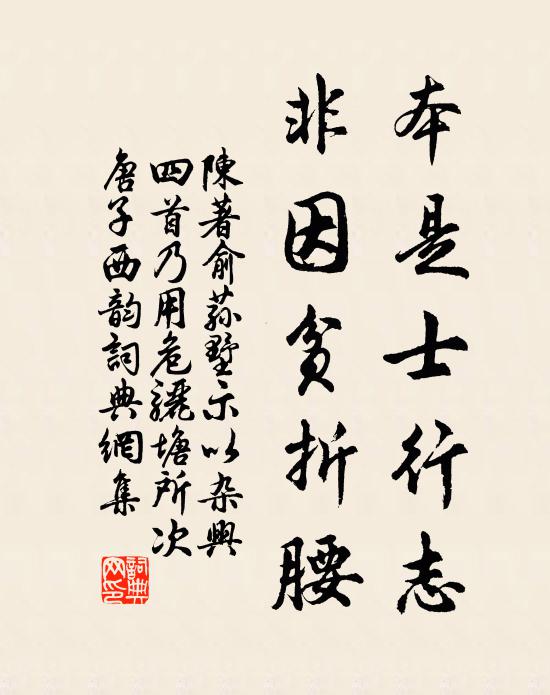 本是士行志
非因貧折腰
陳著俞蒜墅示以杂興
四首乃用危驪塘所次
唐子西韵詞典網集
詞典
网印